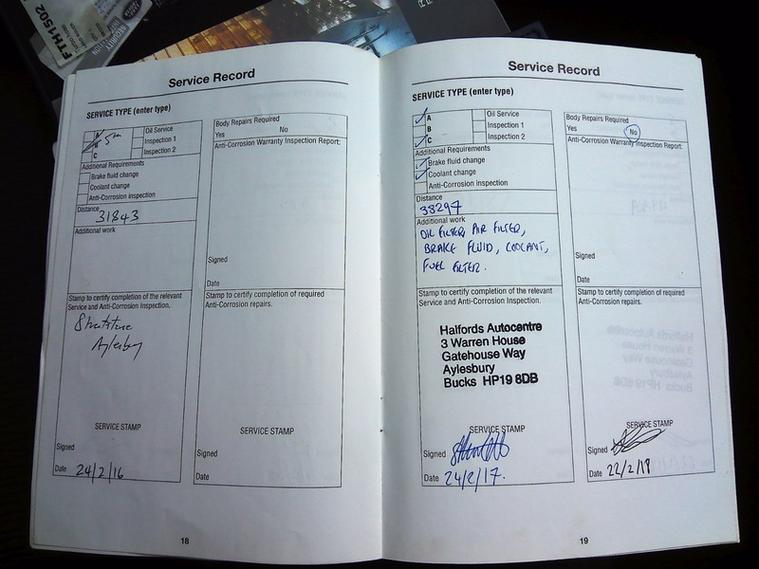 FTH1502
SECURITY
Service Record
SERVICE TYPE (enter type)
A Oil Service
Inspection 1
C Inspection 2
Additional Requirements
Brake fluid change
Coolant change
Anti-Corrosion inspection
Distance
31843
Additional work
Stamp to certify completion of the relevant
Service and Anti-Corrosion Inspection.
Stratstone
Aylesbury
SERVICE STAMP
Signed
Date 24/2/16
Body Repairs Required
Yes No
Anti-Corrosion Warranty Inspection Report:
Signed
Date
Stamp to certify completion of required
Anti-Corrosion repairs.
SERVICE STAMP
Signed
Date
18
Service Record
SERVICE TYPE (enter type)
A Oil Service
B Inspection 1
C Inspection 2
Additional Requirements
Brake fluid change
Coolant change
Anti-Corrosion inspection
Distance
38297
Additional work
OIL FILTER, AIR FILTER,
BRAKE FLUID, COOLANT,
FUEL FILTER.
Stamp to certify completion of the relevant
Service and Anti-Corrosion Inspection.
Halfords Autocentre
3 Warren House
Gatehouse Way
Aylesbury
Bucks HP19 8DB
SERVICE STAMP
Signed
Date 24/2/17.
Body Repairs Required
Yes No
Anti-Corrosion Warranty Inspection Report:
Signed
Date
Stamp to certify completion of required
Anti-Corrosion repairs.
SERVICE STAMP
Signed
Date 22/2/18
19